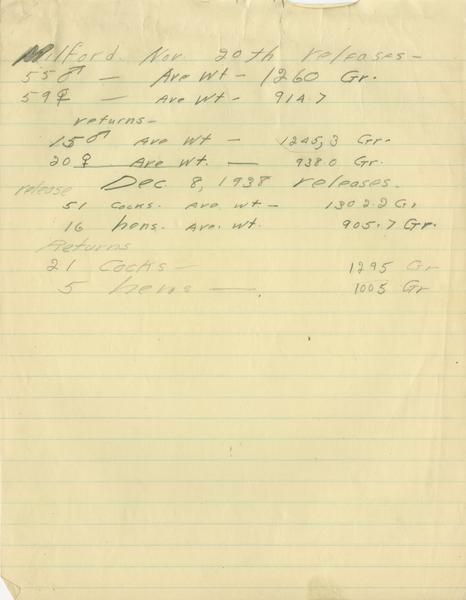 Milford. Nov. 20th releases-
55 ♂ — Ave Wt- 1260 Gr.
59 ♀ — Ave Wt- 914.7
returns-
15 ♂ Ave Wt — 1245,3 Gr.
20 ♀ Ave Wt. — 938.0 Gr.
release Dec 8, 1938 releases.
51 cocks. Ave. wt — 1302.2 Gr
16 hens. Ave. wt. 905.7 Gr.
Returns
21 Cocks — 1295 Gr
5 hens — 1005 Gr